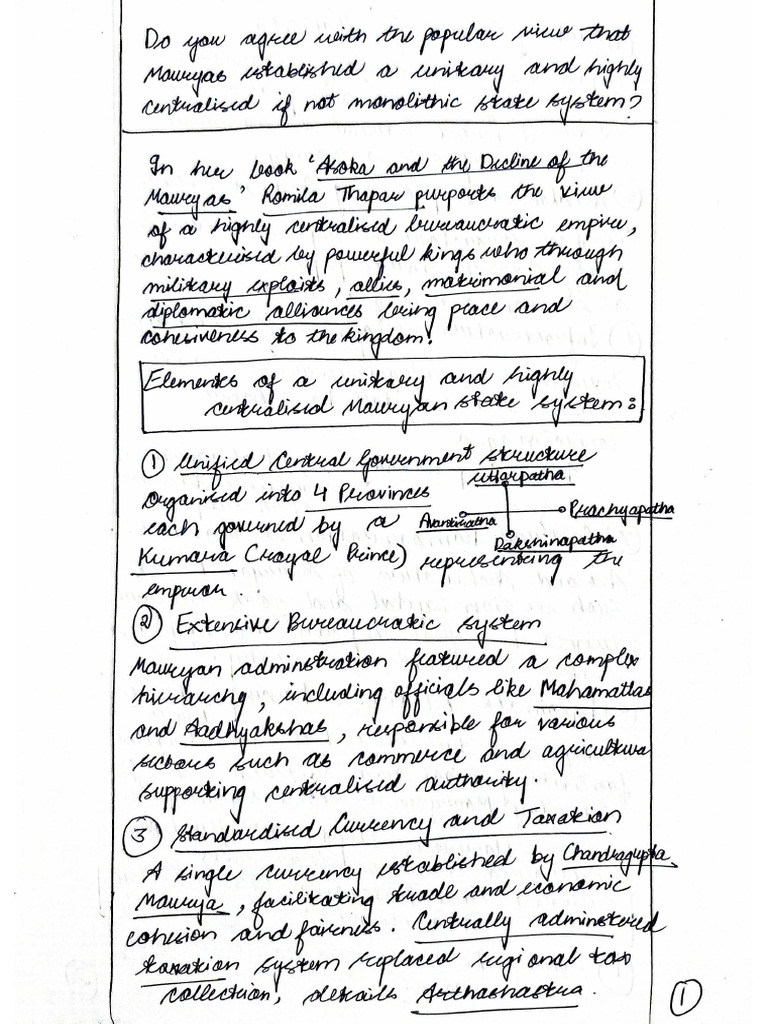 Do you agree with the popular view that
Mauryas established a unitary and highly
centralised if not monolithic state system?
In her book 'Asoka and the Decline of the
Mauryas' Romila Thapar purports the view
of a highly centralised bureaucratic empire,
characterised by powerful kings who through
military exploits, allies, matrimonial and
diplomatic alliances bring peace and
cohesiveness to the kingdom.
Elements of a unitary and highly
centralised Mauryan state system:
① Unified Central Government structure
Uttarpatha
organised into 4 Provinces
Prachyapatha
each governed by a
Avantiratha
Dakshinapatha
Kumara (Royal Prince) representing the
emperor.
② Extensive Bureaucratic system
Mauryan adminstration featured a complex
hierarchy, including officials like Mahamattas
and Aadhyakshas, responsible for various
sectors such as commerce and agriculture
supporting centralised authority.
③ Standardised Currency and Taxation
A single currency established by Chandragupta
Maurya, facilitating trade and economic
cohesion and fairness. Centrally adminstered
taxation system replaced regional tax
collection, details Arthashastra.
①